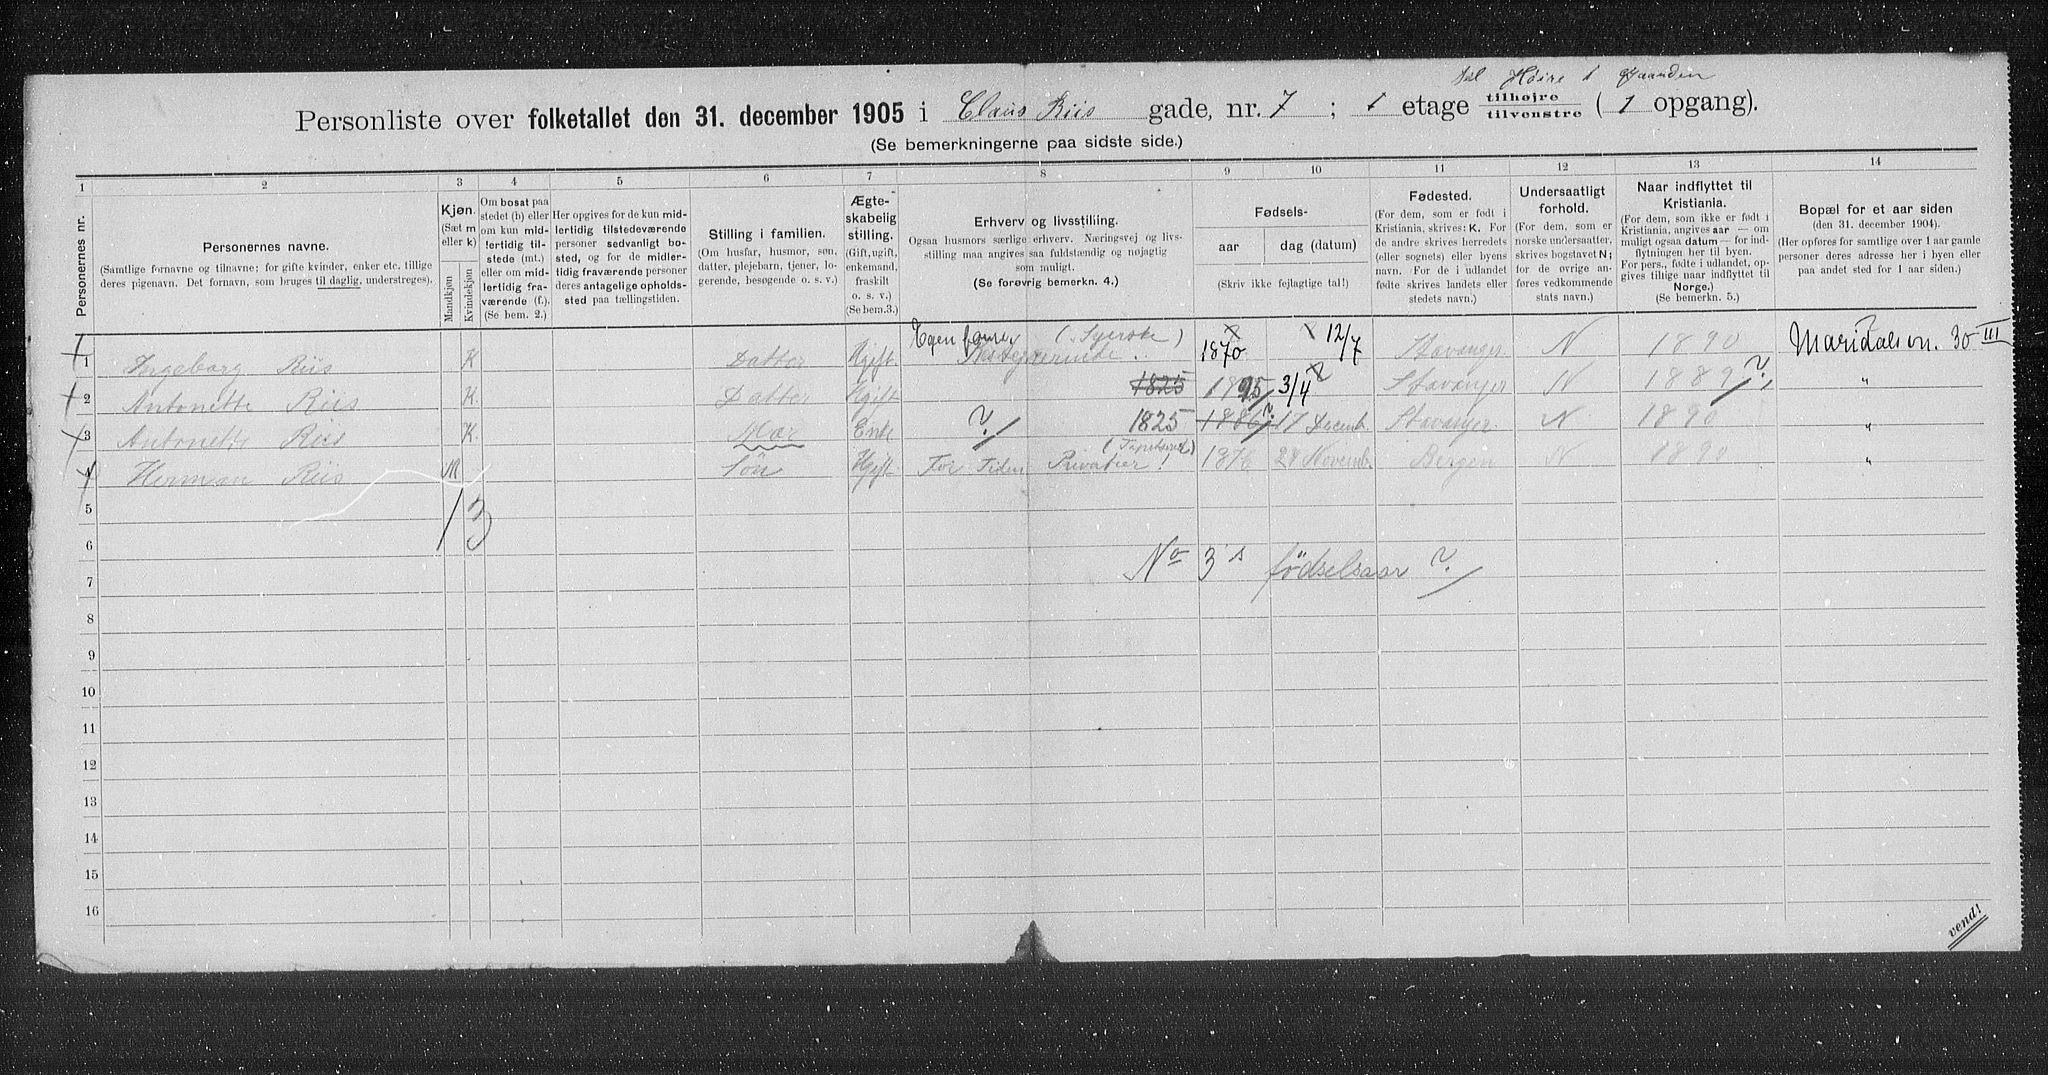 til Høire i gaarden
Personliste over folketallet den 31. december 1905 i Claus Riis gade, nr. 7 ; 1 etage tilhøjre tilvenstre ( 1 opgang).
(Se bemerkningerne paa sidste side.)
1 2 3 4 5 6 7 8 9 10 11 12 13 14
Personernes nr.
Personernes navne.
(Samtlige fornavne og tilnavne; for gifte kvinder, enker etc. tillige deres pigenavn. Det fornavn, som bruges til daglig, understreges).
Kjøn.
(Sæt m eller k)
Mandkjøn
Kvindekjøn
Om bosat paa stedet (b) eller om kun midlertidig tilstede (mt.) eller om midlertidig fraværende (f.). (Se bem. 2.)
Her opgives for de kun midlertidig tilstedeværende personer sedvanlig bosted, og for de midlertidig fraværende personer deres antagelige opholdssted paa tællingstiden.
Stilling i familien.
(Om husfar, husmor, søn, datter, plejebarn, tjener, logerende, besøgende o. s. v.)
Ægteskabelig stilling.
(Gift, ugift, enkemand, fraskilt o. s. v.)
(Se bem. 3.)
Erhverv og livsstilling.
Ogsaa husmors særlige erhverv. Næringsvej og livsstilling maa angives saa fuldstændig og nøjagtig som muligt.
(Se forøvrig bemerkn. 4.)
Fødsels-
aar
dag (datum)
(Skriv ikke fejlagtige tal!)
Fødested.
(For dem, som er født i Kristiania, skrives: K. For de andre skrives herredets (eller sognets) eller byens navn. For de i udlandet fødte skrives landets eller stedets navn.)
Undersaatligt forhold.
(For dem, som er norske undersaatter, skrives bogstavet N; for de øvrige anføres vedkommende stats navn.)
Naar indflyttet til Kristiania.
(For dem, som ikke er født i Kristiania, angives aar — om muligt ogsaa datum — for indflytningen her til byen. For pers., fødte i udlandet, opgives tillige naar indflyttet til Norge.)
(Se bemerkn. 5.)
Bopæl for et aar siden
(den 31. december 1904).
(Her opføres for samtlige over 1 aar gamle personer deres adresse her i byen eller paa andet sted for 1 aar siden.)
1 Ingeborg Riis K Datter Ugift (Syerske) 1870 12/7 Stavanger N 1890 Maridalsvn. 30 III
2 Antonette Riis K. Datter Ugift 1825 1895 3/4 Stavanger N 1889 ? "
3 Antonette Riis K. Mor Enke ? 1825 1886 ? 17 Decemb. Stavanger N 1890 "
4 Herman Riis M Sön Ugift For Tiden Privatier! 1876 28 Novemb. Bergen N 1890 "
5 1 3
6
No 3's födselsaar ?
7
8
9
10
11
12
13
14
15
16
vend!